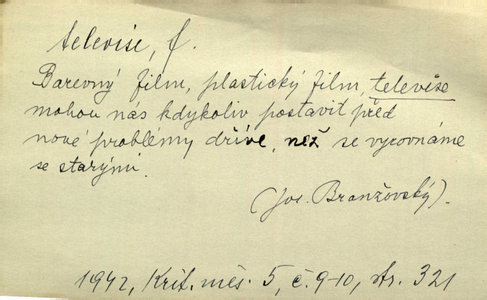 televise, f.
Barevný film, plastický film, televise
mohou nás kdykoliv postavit před
nové problémy dříve, než se vyrovnáme
se starými.
(Jos. Branžovský).
1942, Krit. měs. 5, č. 9-10, str. 321